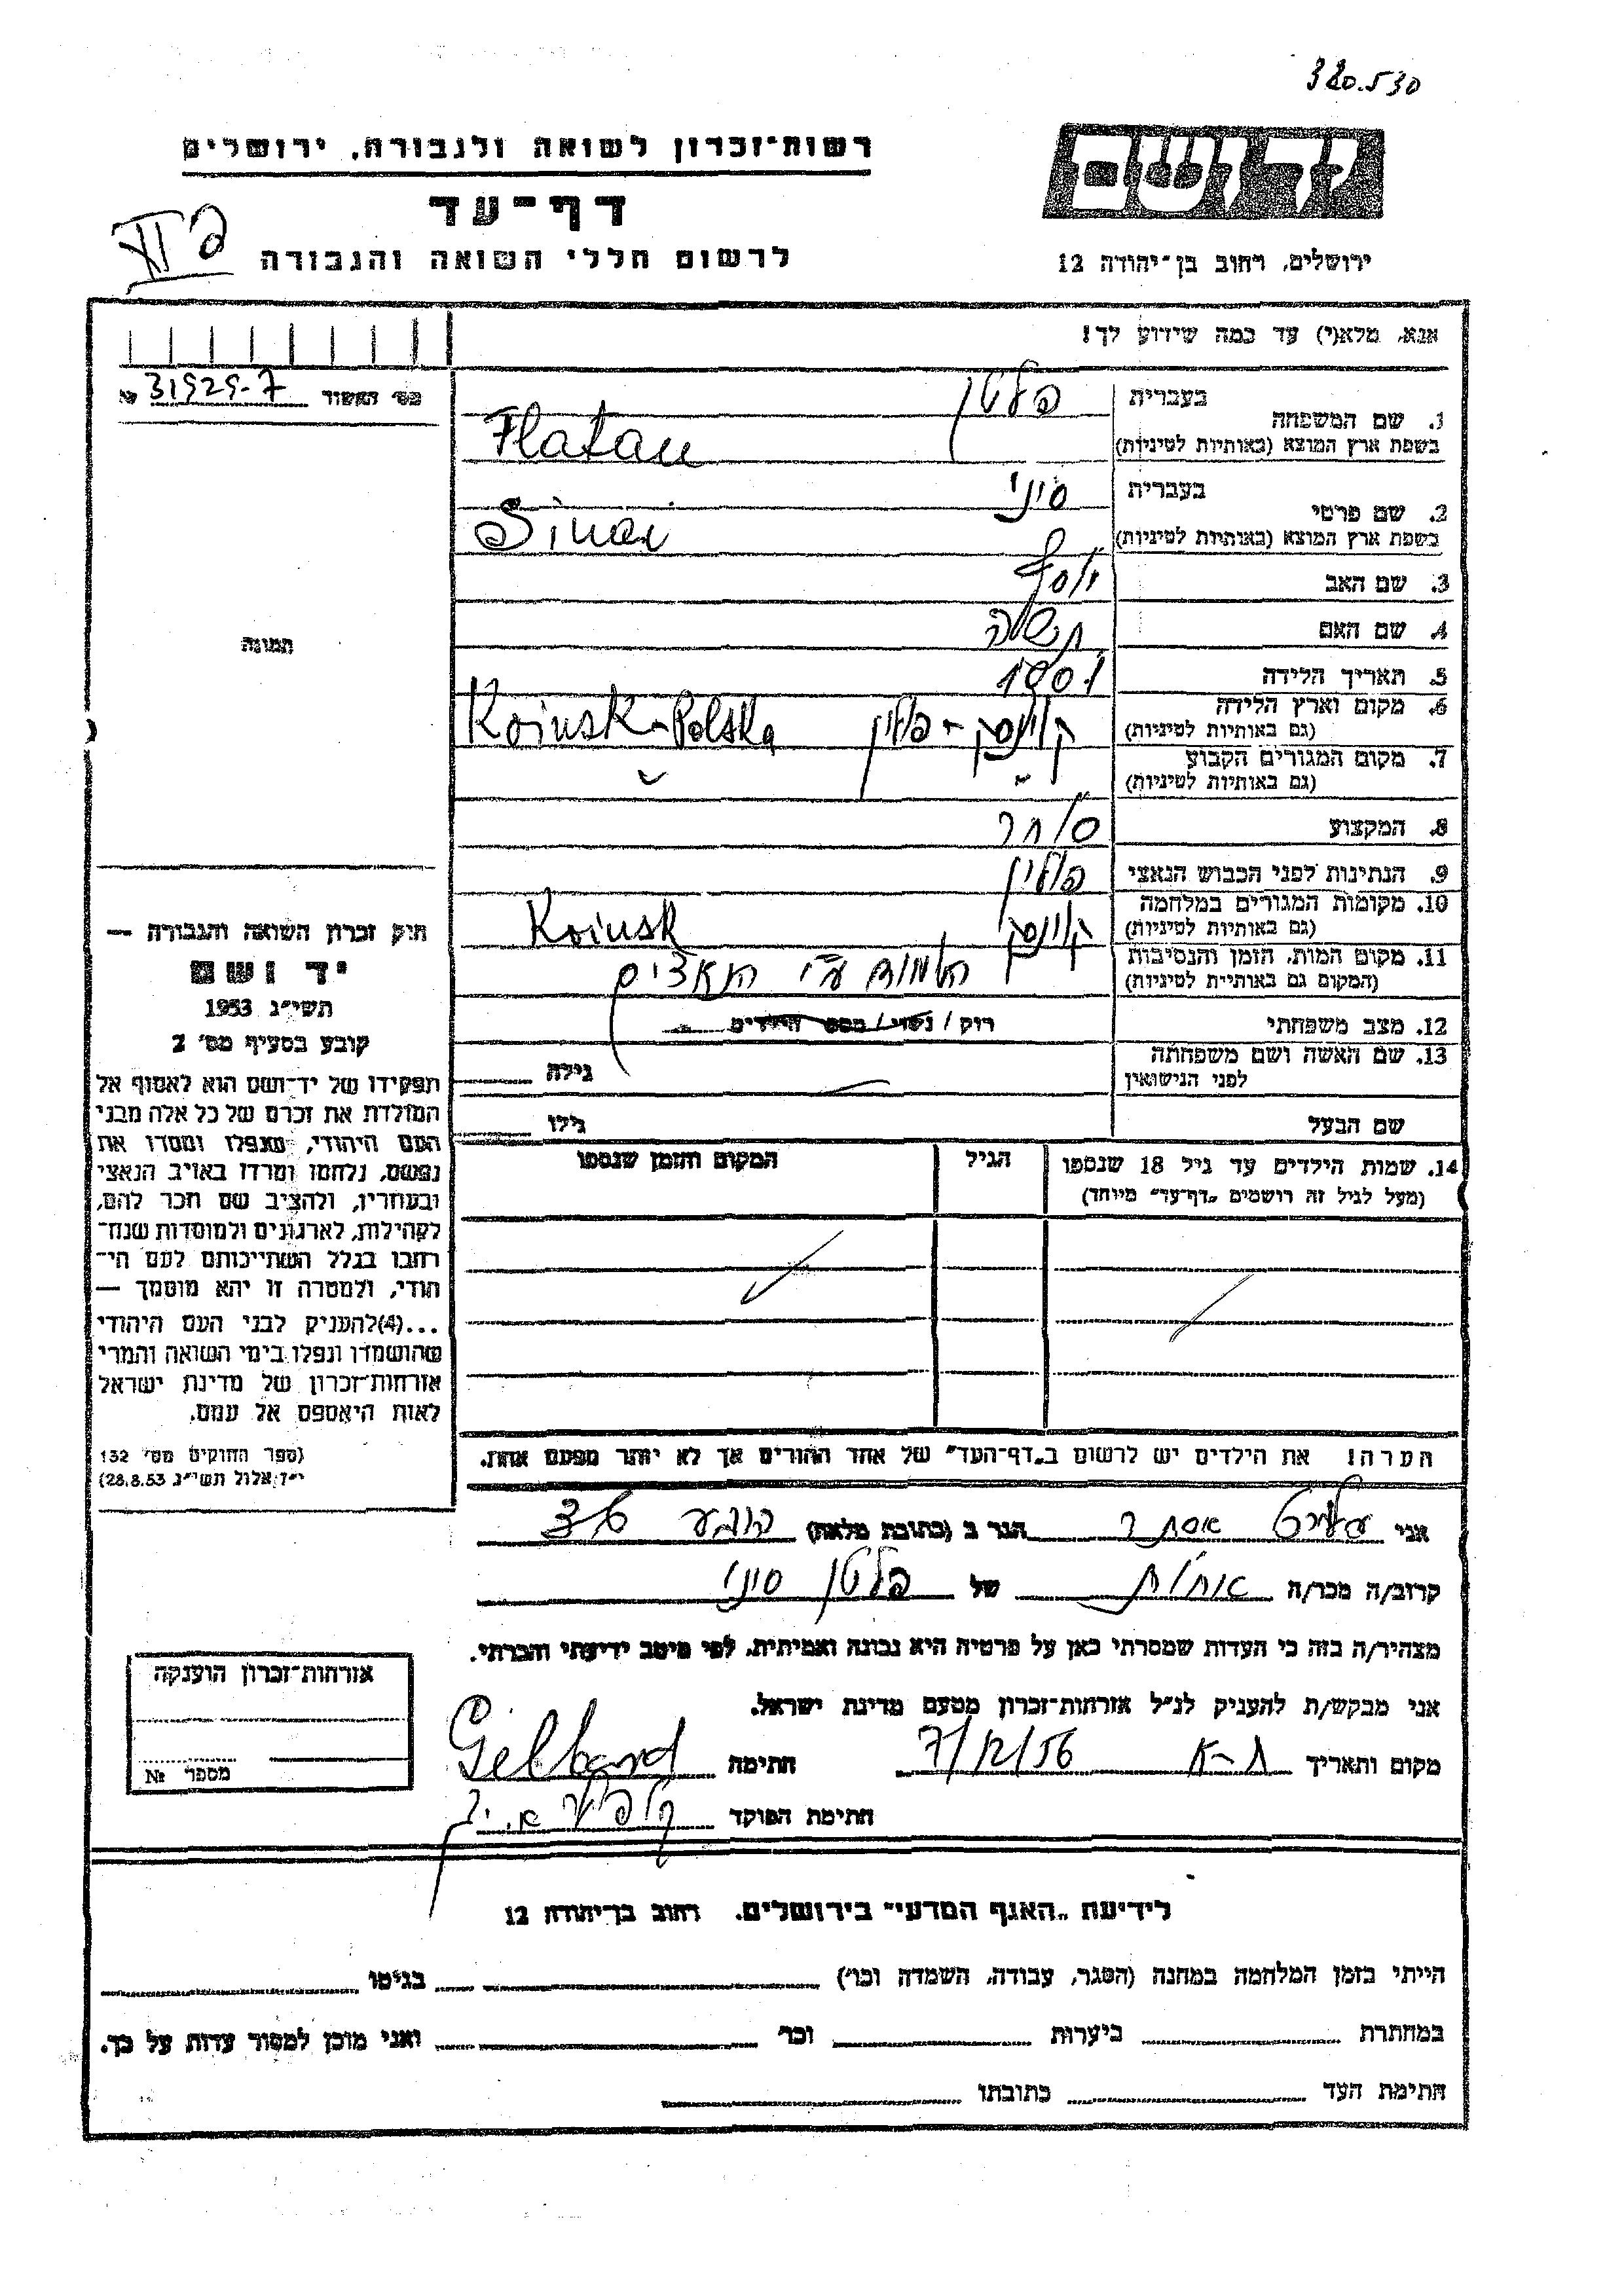 320.530
יד ושם
רשות־זכרון לשואה ולגבורה, ירושלים
דף־עד
לרשום חללי השואה והגבורה
ירושלים, רחוב בן־יהודה 12
אנא, מלא(י) עד כמה שידוע לך!
מס׳ האשור № 31929-7
1. שם המשפחה
בעברית פלטן
בשפת ארץ המוצא (באותיות לטיניות) Flatau
2. שם פרטי
בעברית סיני
בשפת ארץ המוצא (באותיות לטיניות) Sinai
3. שם האב יוסף
4. שם האם
5. תאריך הלידה
6. מקום וארץ הלידה
(גם באותיות לטיניות) קוינסק - פולין Koinsk - Polska
7. מקום המגורים הקבוע
(גם באותיות לטיניות)
8. המקצוע סוחר
9. הנתינות לפני הכבוש הנאצי פולין
10. מקומות המגורים במלחמה
(גם באותיות לטיניות) קוינסק Koinsk
11. מקום המות, הזמן והנסיבות
(המקום גם באותיית לטיניות) ע״י הנאצים
12. מצב משפחתי רוק / נשוי / מספר הילדים
13. שם האשה ושם משפחתה
לפני הנישואין
גילה
שם הבעל גילו
14. שמות הילדים עד גיל 18 שנספו
(מעל לגיל זה רושמים „דף־עד״ מיוחד)
הגיל
המקום והזמן שנספו
תמונה
חוק זכרון השואה והגבורה —
יד ושם
תשי״ג 1953
קובע בסעיף מס׳ 2
תפקידו של יד־ושם הוא לאסוף אל
המולדת את זכרם של כל אלה מבני
העם היהודי, שנפלו ומסרו את
נפשם, נלחמו ומרדו באויב הנאצי
ובעוזריו, ולהציב שם וזכר להם,
לקהילות, לארגונים ולמוסדות שנח־
רבו בגלל השתייכותם לעם הי־
הודי, ולמטרה זו יהא מוסמך —
...(4)להעניק לבני העם היהודי
שהושמדו ונפלו בימי השואה והמרי
אזרחות־זכרון של מדינת ישראל
לאות היאספם אל עמם.
(ספר החוקים מס׳ 132
י״ז אלול תשי״ג 28.8.53)
הערה! את הילדים יש לרשום ב„דף־העד״ של אחד ההורים אך לא יותר מפעם אחת.
אני אסתר הגר ב (כתובת מלאה)
קרוב/ה מכר/ה אחות של פלטן סיני
מצהיר/ה בזה כי העדות שמסרתי כאן על פרטיה היא נכונה ואמיתית, לפי מיטב ידיעתי והכרתי.
אני מבקש/ת להעניק לנ״ל אזרחות־זכרון מטעם מדינת ישראל.
מקום ותאריך ת-א 7/12/56 חתימה Gelband
חתימת הפוקד
אזרחות־זכרון הוענקה
מספר №
לידיעת „האגף המדעי״ בירושלים, רחוב בן־יהודה 12
הייתי בזמן המלחמה במחנה (הסגר, עבודה, השמדה וכו׳) בגיטו
במחתרת ביערות וכו׳ ואני מוכן למסור עדות על כך.
חתימת העד כתובתו